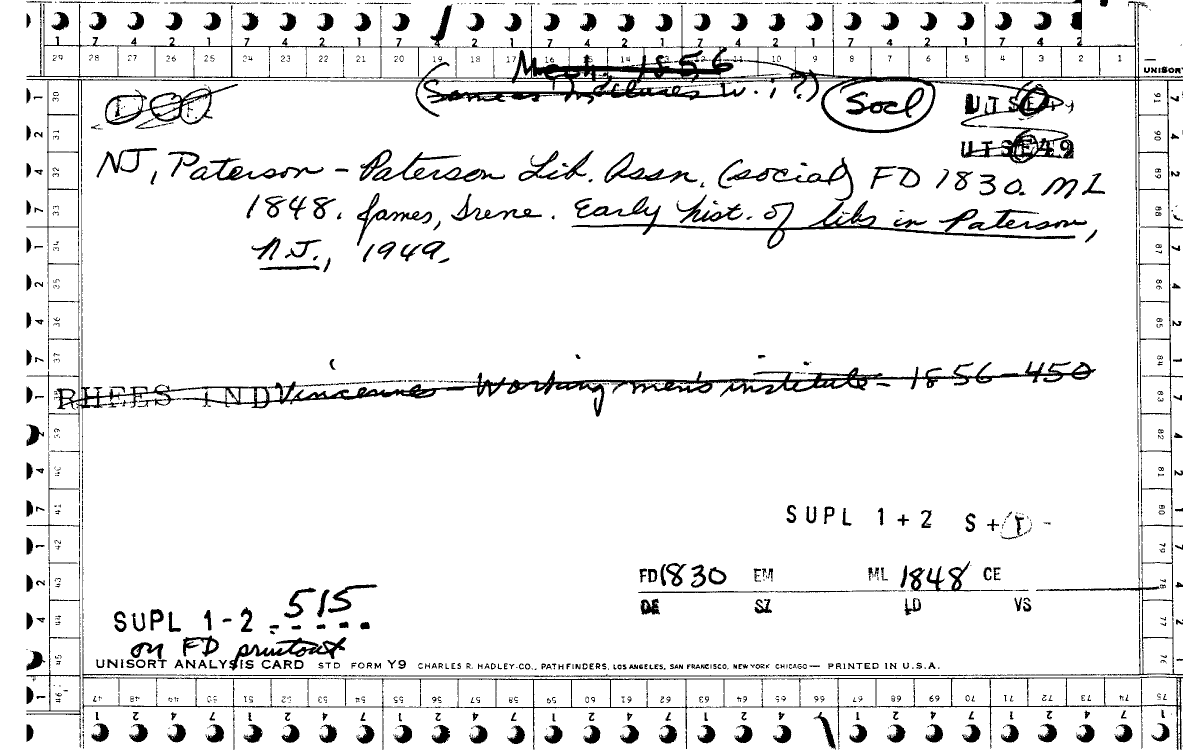 1 7 4 2 1 7 4 2 1 7 4 2 1 7 4 2 1 7 4 2 1 7 4 2 1 7 4 2
29 28 27 26 25 24 23 22 21 20 19 18 17 16 15 14 13 12 11 10 9 8 7 6 5 4 3 2 1
UNISORT
Mech. 1856
(Same as Institutes W. i ?)
Socl
UTSE49
UTSE49
NJ, Paterson - Paterson Lib. Assn. (social) FD 1830. ML
1848. James, Irene. Early hist. of libs in Paterson,
N.J., 1949.
RHEES IND Vincennes - Working men's institute - 1856-450
SUPL 1+2 S+I -
FD 1830 EM ML 1848 CE
DE SZ LD VS
SUPL 1-2 515
on FD printout
UNISORT ANALYSIS CARD STD FORM Y9 CHARLES R. HADLEY-CO., PATHFINDERS, LOS ANGELES, SAN FRANCISCO, NEW YORK CHICAGO — PRINTED IN U.S.A.
47 48 49 50 51 52 53 54 55 56 57 58 59 60 61 62 63 64 65 66 67 68 69 70 71 72 73 74 75
1 2 4 7 1 2 4 7 1 2 4 7 1 2 4 7 1 2 4 7 1 2 4 7 1 2 4 7 1